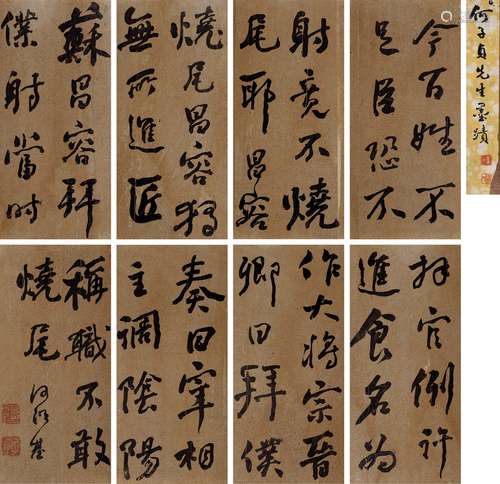 何子貞先生墨蹟
蘇昌容拜
僕射當時
拜官例許
進食名為
燒尾昌容獨
無所進匠
作大將宗晉
卿曰拜僕
射竟不燒
尾耶昌容
奏曰宰相
主調陰陽
今百姓不
足臣恐不
稱職不敢
燒尾
何紹基